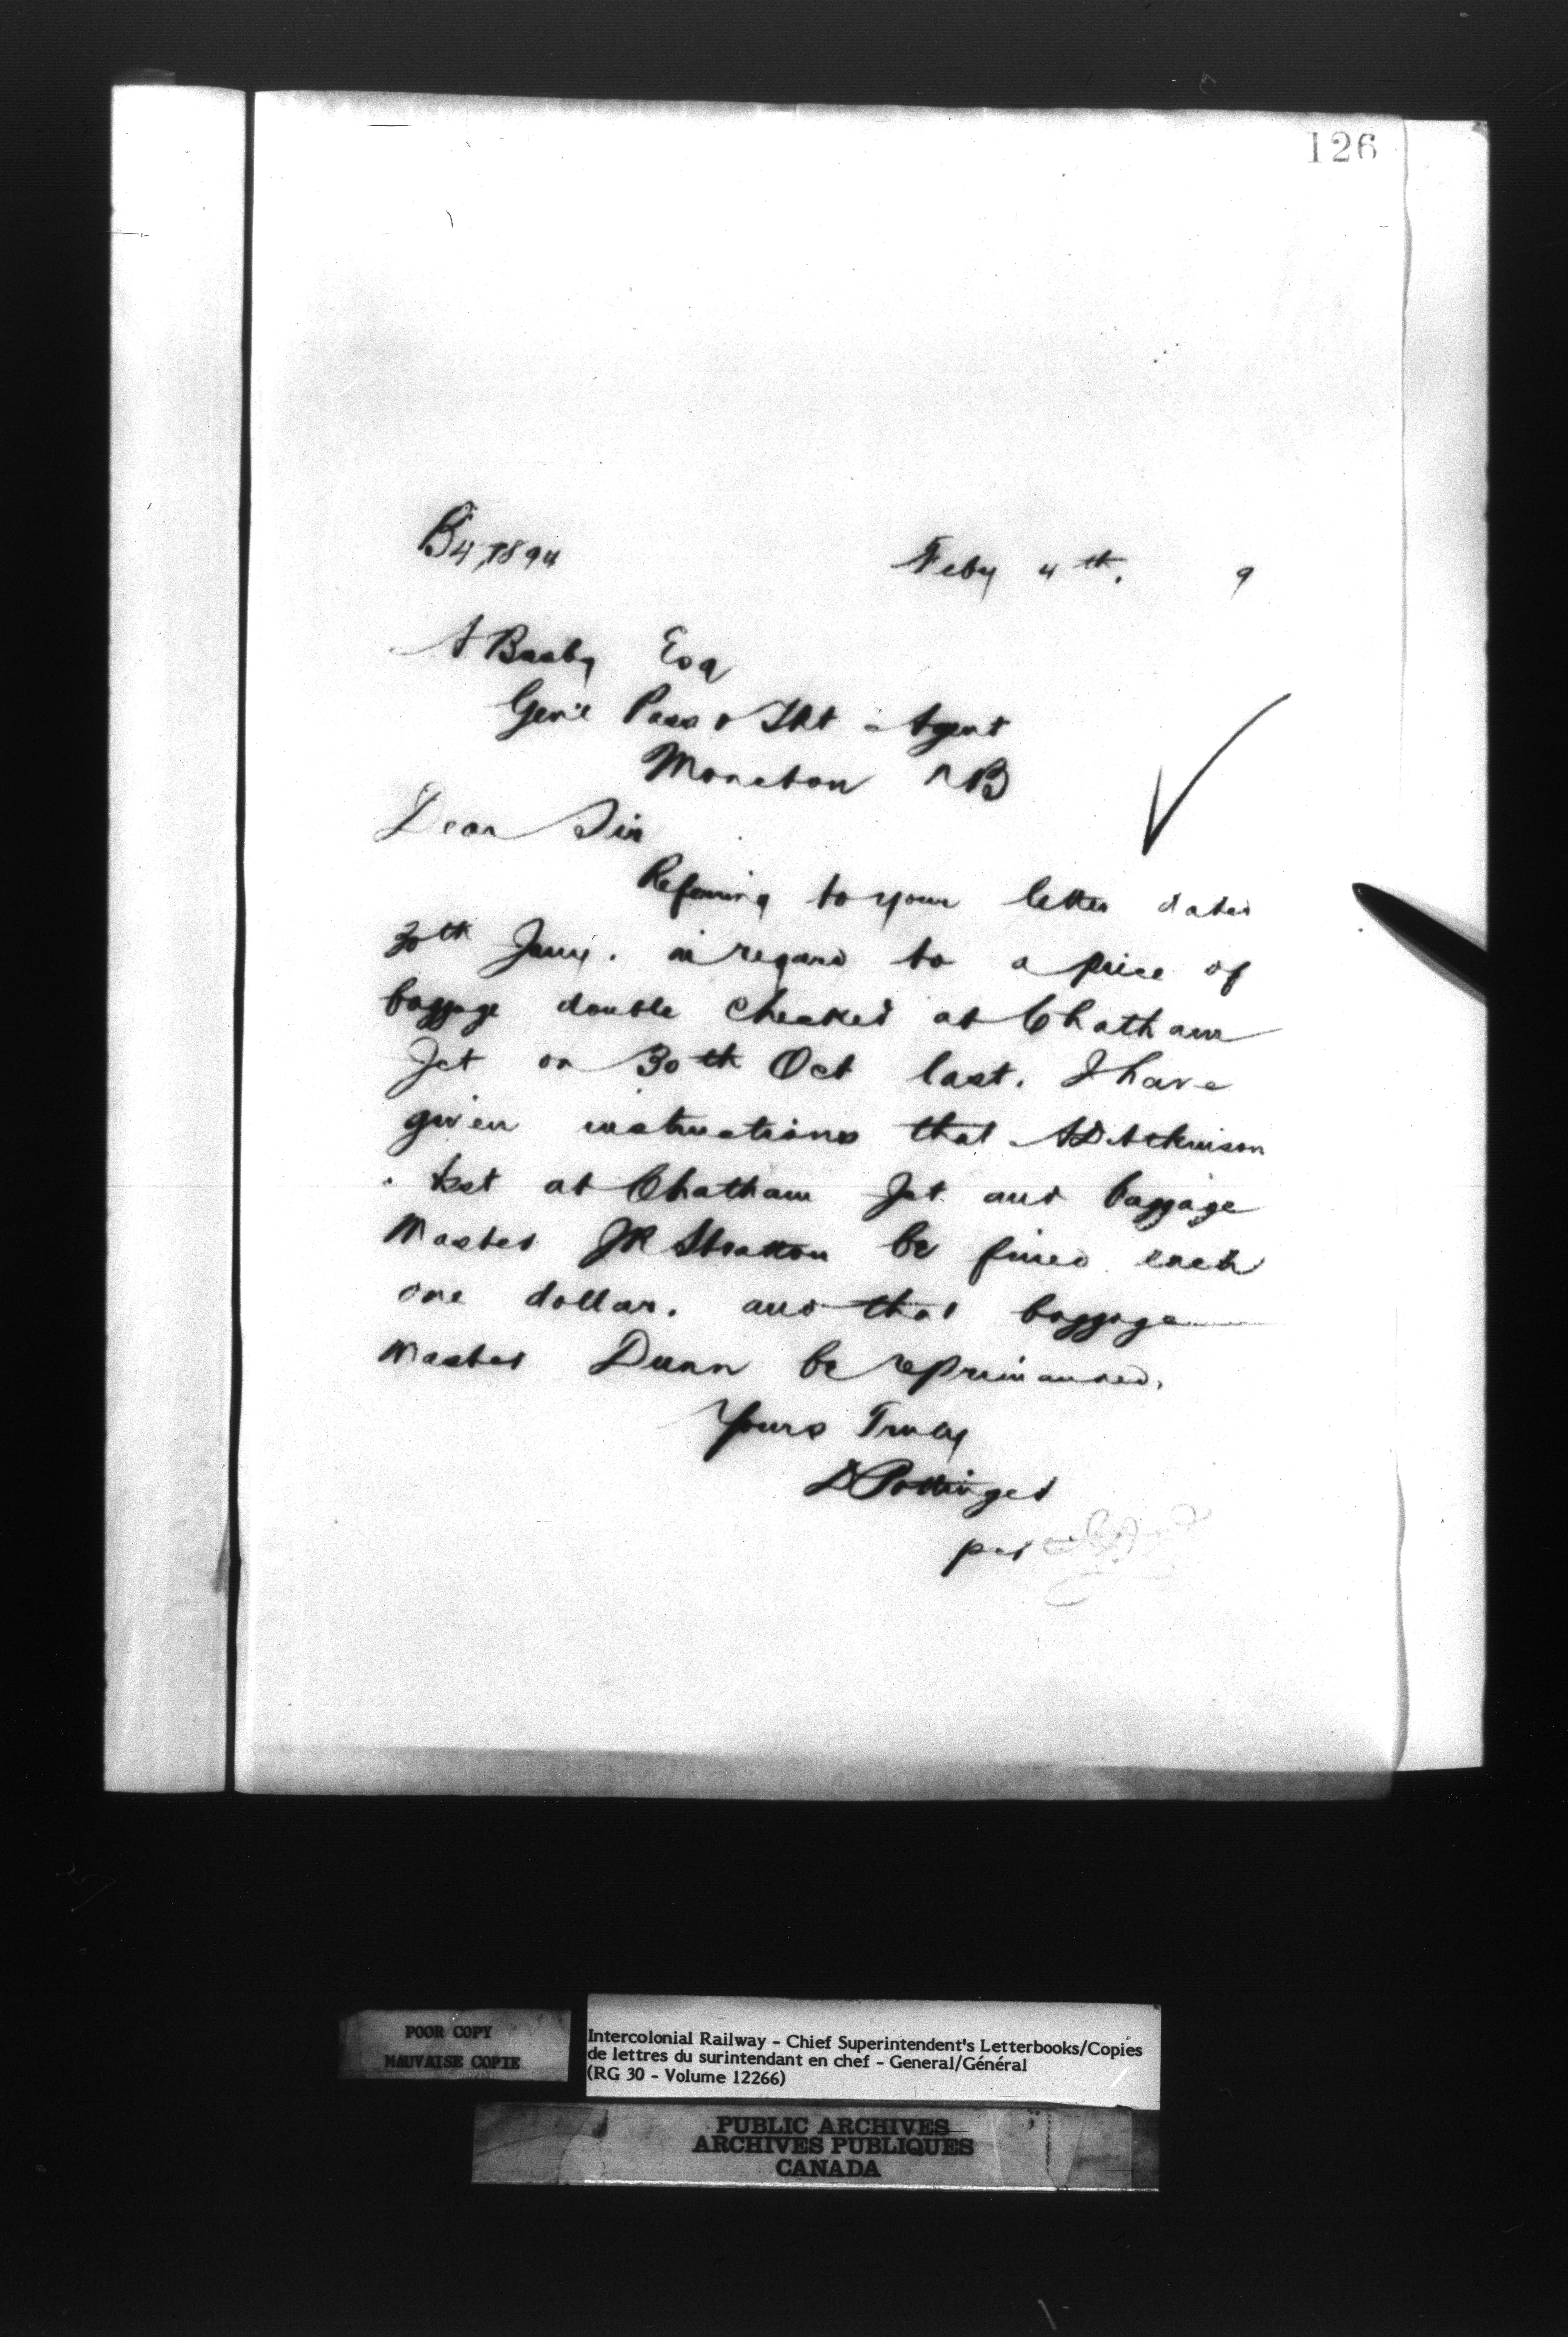 126
B4,1894
Feby 4th. 9
A Busby Esq
Gen'l Pass & Tkt Agent
Moncton NB
Dear Sir
Referring to your letter dated
30th Jany. in regard to a piece of
baggage double checked at Chatham
Jct on 30th Oct last. I have
given instructions that AD Atkinson
at Chatham Jct and baggage
Master JR Stratton be fined each
one dollar. and that baggage
Master Dunn be reprimanded.
Yours Truly
D Pottinger
per
POOR COPY
MAUVAISE COPIE
Intercolonial Railway - Chief Superintendent's Letterbooks/Copies
de lettres du surintendant en chef - General/Général
(RG 30 - Volume 12266)
PUBLIC ARCHIVES
ARCHIVES PUBLIQUES
CANADA